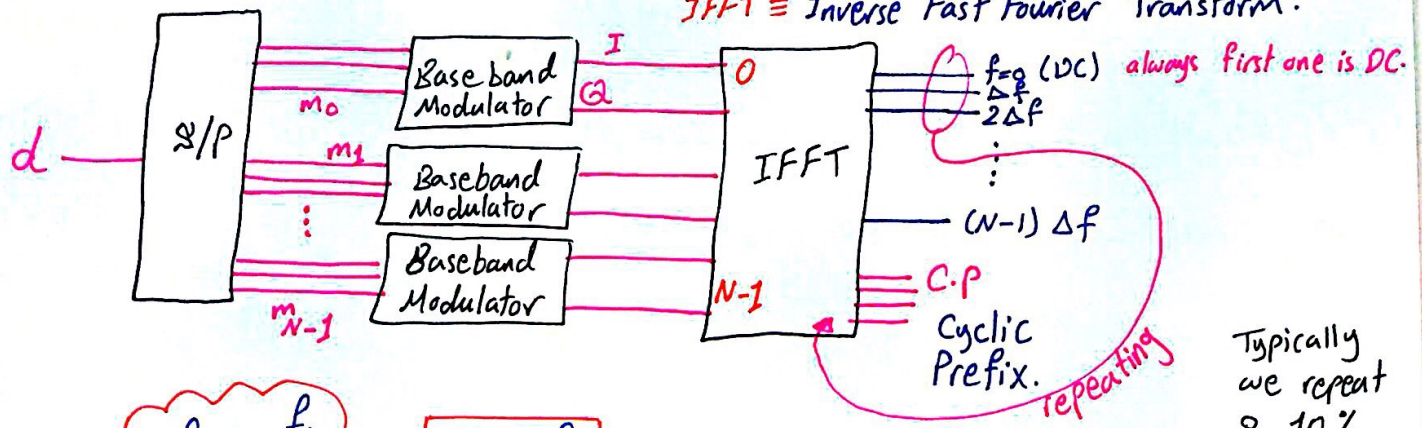 IFFT ≡ Inverse Fast Fourier Transform.
d
S/P
m0
m1
mN-1
Baseband
Modulator
Baseband
Modulator
Baseband
Modulator
I
Q
0
N-1
IFFT
f=0 (DC) always first one is DC.
Δf
2Δf
(N-1) Δf
C.P
Cyclic
Prefix.
repeating
Typically
we repeat